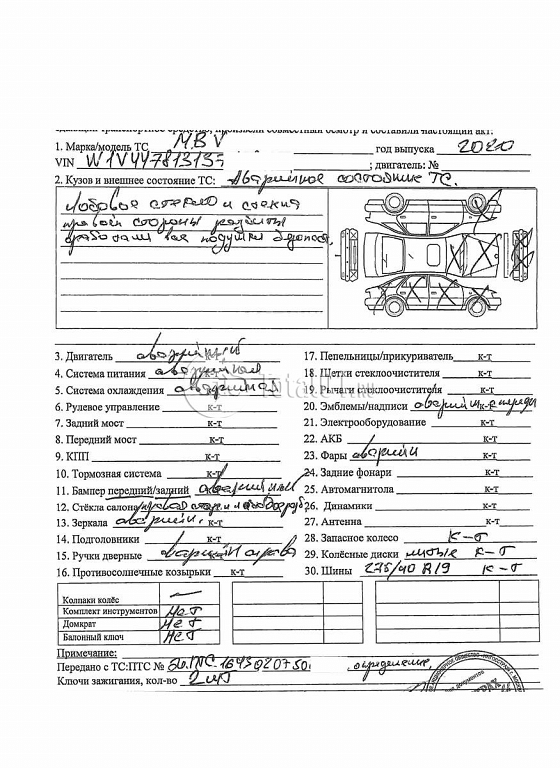 1. Марка/модель ТС MBV год выпуска 2020
VIN W1V447813135 ; двигатель: №
2. Кузов и внешнее состояние ТС: Аварийное состояние ТС.
Лобовое стекло и стекла
правой стороны разбиты
сработали все подушки безопасн.
3. Двигатель аварийный к-т
4. Система питания аварийная
5. Система охлаждения аварийная
6. Рулевое управление к-т
7. Задний мост к-т
8. Передний мост к-т
9. КПП к-т
10. Тормозная система к-т
11. Бампер передний/задний аварийный
12. Стёкла салона
13. Зеркала аварийн.
14. Подголовники к-т
15. Ручки дверные аварийн права
16. Противосолнечные козырьки к-т
17. Пепельницы/прикуриватель к-т
18. Щетки стеклоочистителя к-т
19. Рычаги стеклоочистителя к-т
20. Эмблемы/надписи аварийн к-т переды
21. Электрооборудование к-т
22. АКБ к-т
23. Фары аварийн к-т
24. Задние фонари к-т
25. Автомагнитола к-т
26. Динамики к-т
27. Антенна к-т
28. Запасное колесо к-т
29. Колёсные диски литые к-т
30. Шины 275/40 R19 к-т
Колпаки колёс —
Комплект инструментов нет
Домкрат нет
Балонный ключ нет
Примечание:
Передано с ТС:ПТС № Эл.ПТС 1643020750. определение,
Ключи зажигания, кол-во 2 шт